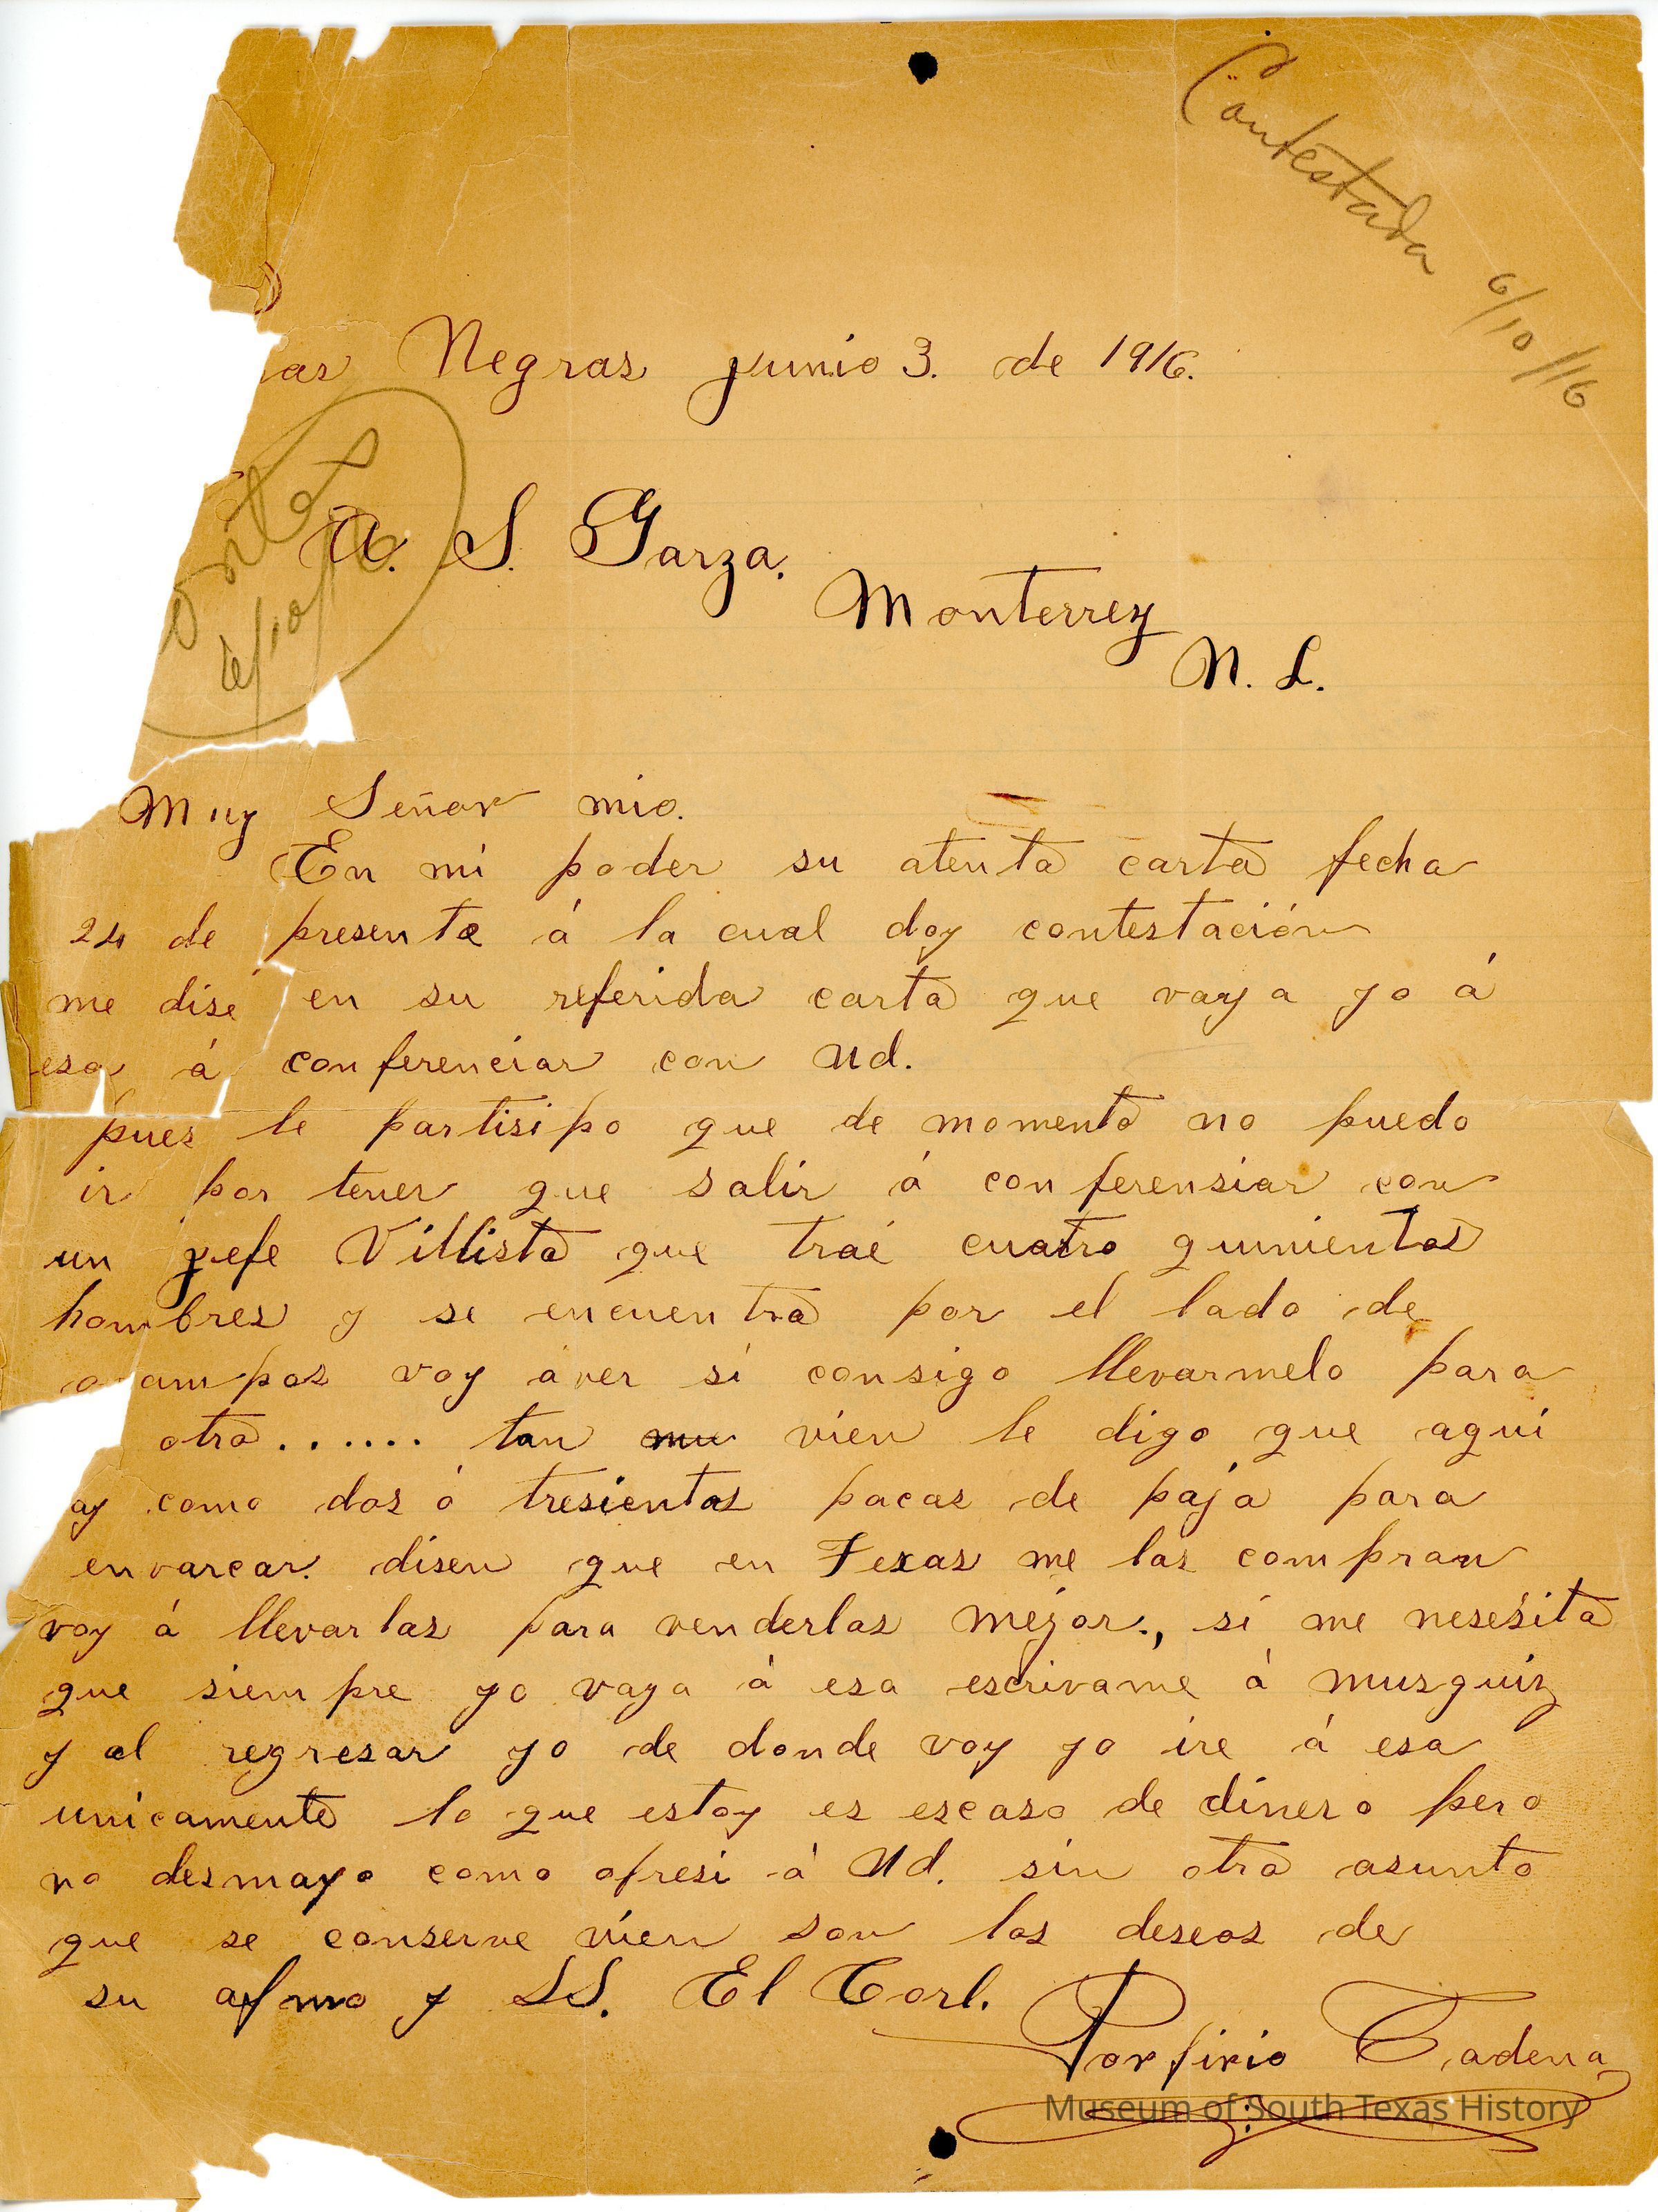 Contestada
6/10/16
as Negras junio 3. de 1916.
6/10/16
A. S. Garza.
Monterrey
N. L.
Muy Señor mio.
En mi poder su atenta carta fecha
24 de presente á la cual doy contestación
me dise en su referida carta que vaya yo á
esa á conferenciar con Ud.
pues le partisipo que de momento no puedo
ir por tener que salir á conferensiar con
un jefe Villista que traé cuatro quinientos
hombres y se encuentra por el lado de
ocampos voy áver si consigo llevarmelo para
otra....... tan mu vien le digo que aqui
ay como dos ó tresientas pacas de pája para
envarcar. disen que en Texas me las compran
voy á llevarlas para venderlas mejor., si me nesesita
que siempre yo vaya á esa escrivame á musquiz
y al regresar yo de donde voy yo ire á esa
unicamente lo que estoy es escaso de dinero pero
no desmayo como ofresi á Ud. sin otro asunto
que se conserve vien son los deseos de
su afmo y SS. El Corl.
Porfirio Cadena
Museum of South Texas History